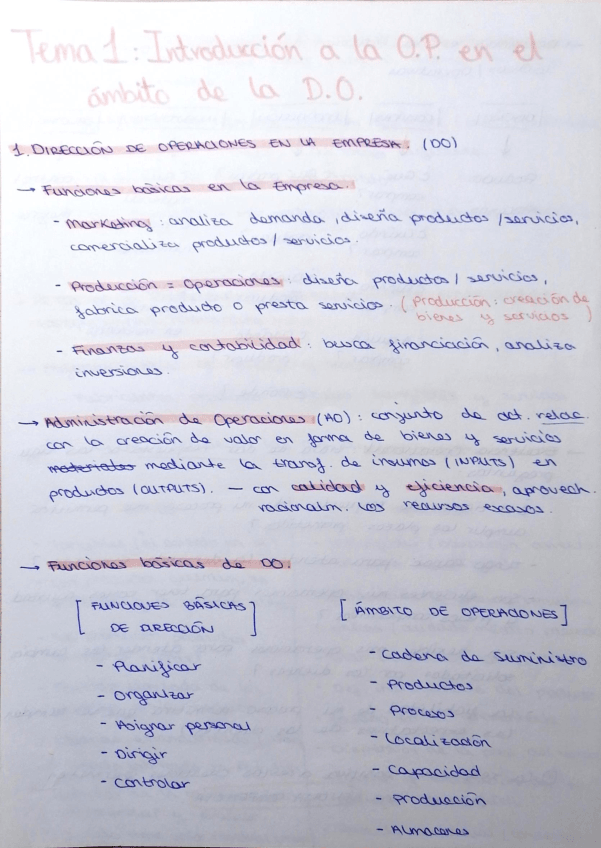 Tema 1: Introducción a la O.P. en el
ámbito de la D.O.
1. DIRECCIÓN DE OPERACIONES EN LA EMPRESA. (DO)
→ Funciones básicas en la Empresa.
- Marketing: analiza demanda, diseña productos / servicios,
comercializa productos / servicios.
- Producción = Operaciones: diseña productos / servicios,
fabrica producto o presta servicios. (Producción: creación de
bienes y servicios)
- Finanzas y contabilidad: busca financiación, analiza
inversiones.
→ Administración de Operaciones (AO): conjunto de act. relac.
con la creación de valor en forma de bienes y servicios
materiales mediante la transf. de insumos (INPUTS) en
productos (OUTPUTS). — con calidad y eficiencia, aprovech.
racionalm. los recursos escasos.
→ Funciones básicas de DO.
[ FUNCIONES BÁSICAS ]
DE DIRECCIÓN
- Planificar
- Organizar
- Asignar personal
- Dirigir
- Controlar
[ ÁMBITO DE OPERACIONES ]
- Cadena de Suministro
- Productos
- Procesos
- Localización
- Capacidad
- Producción
- Almacenes